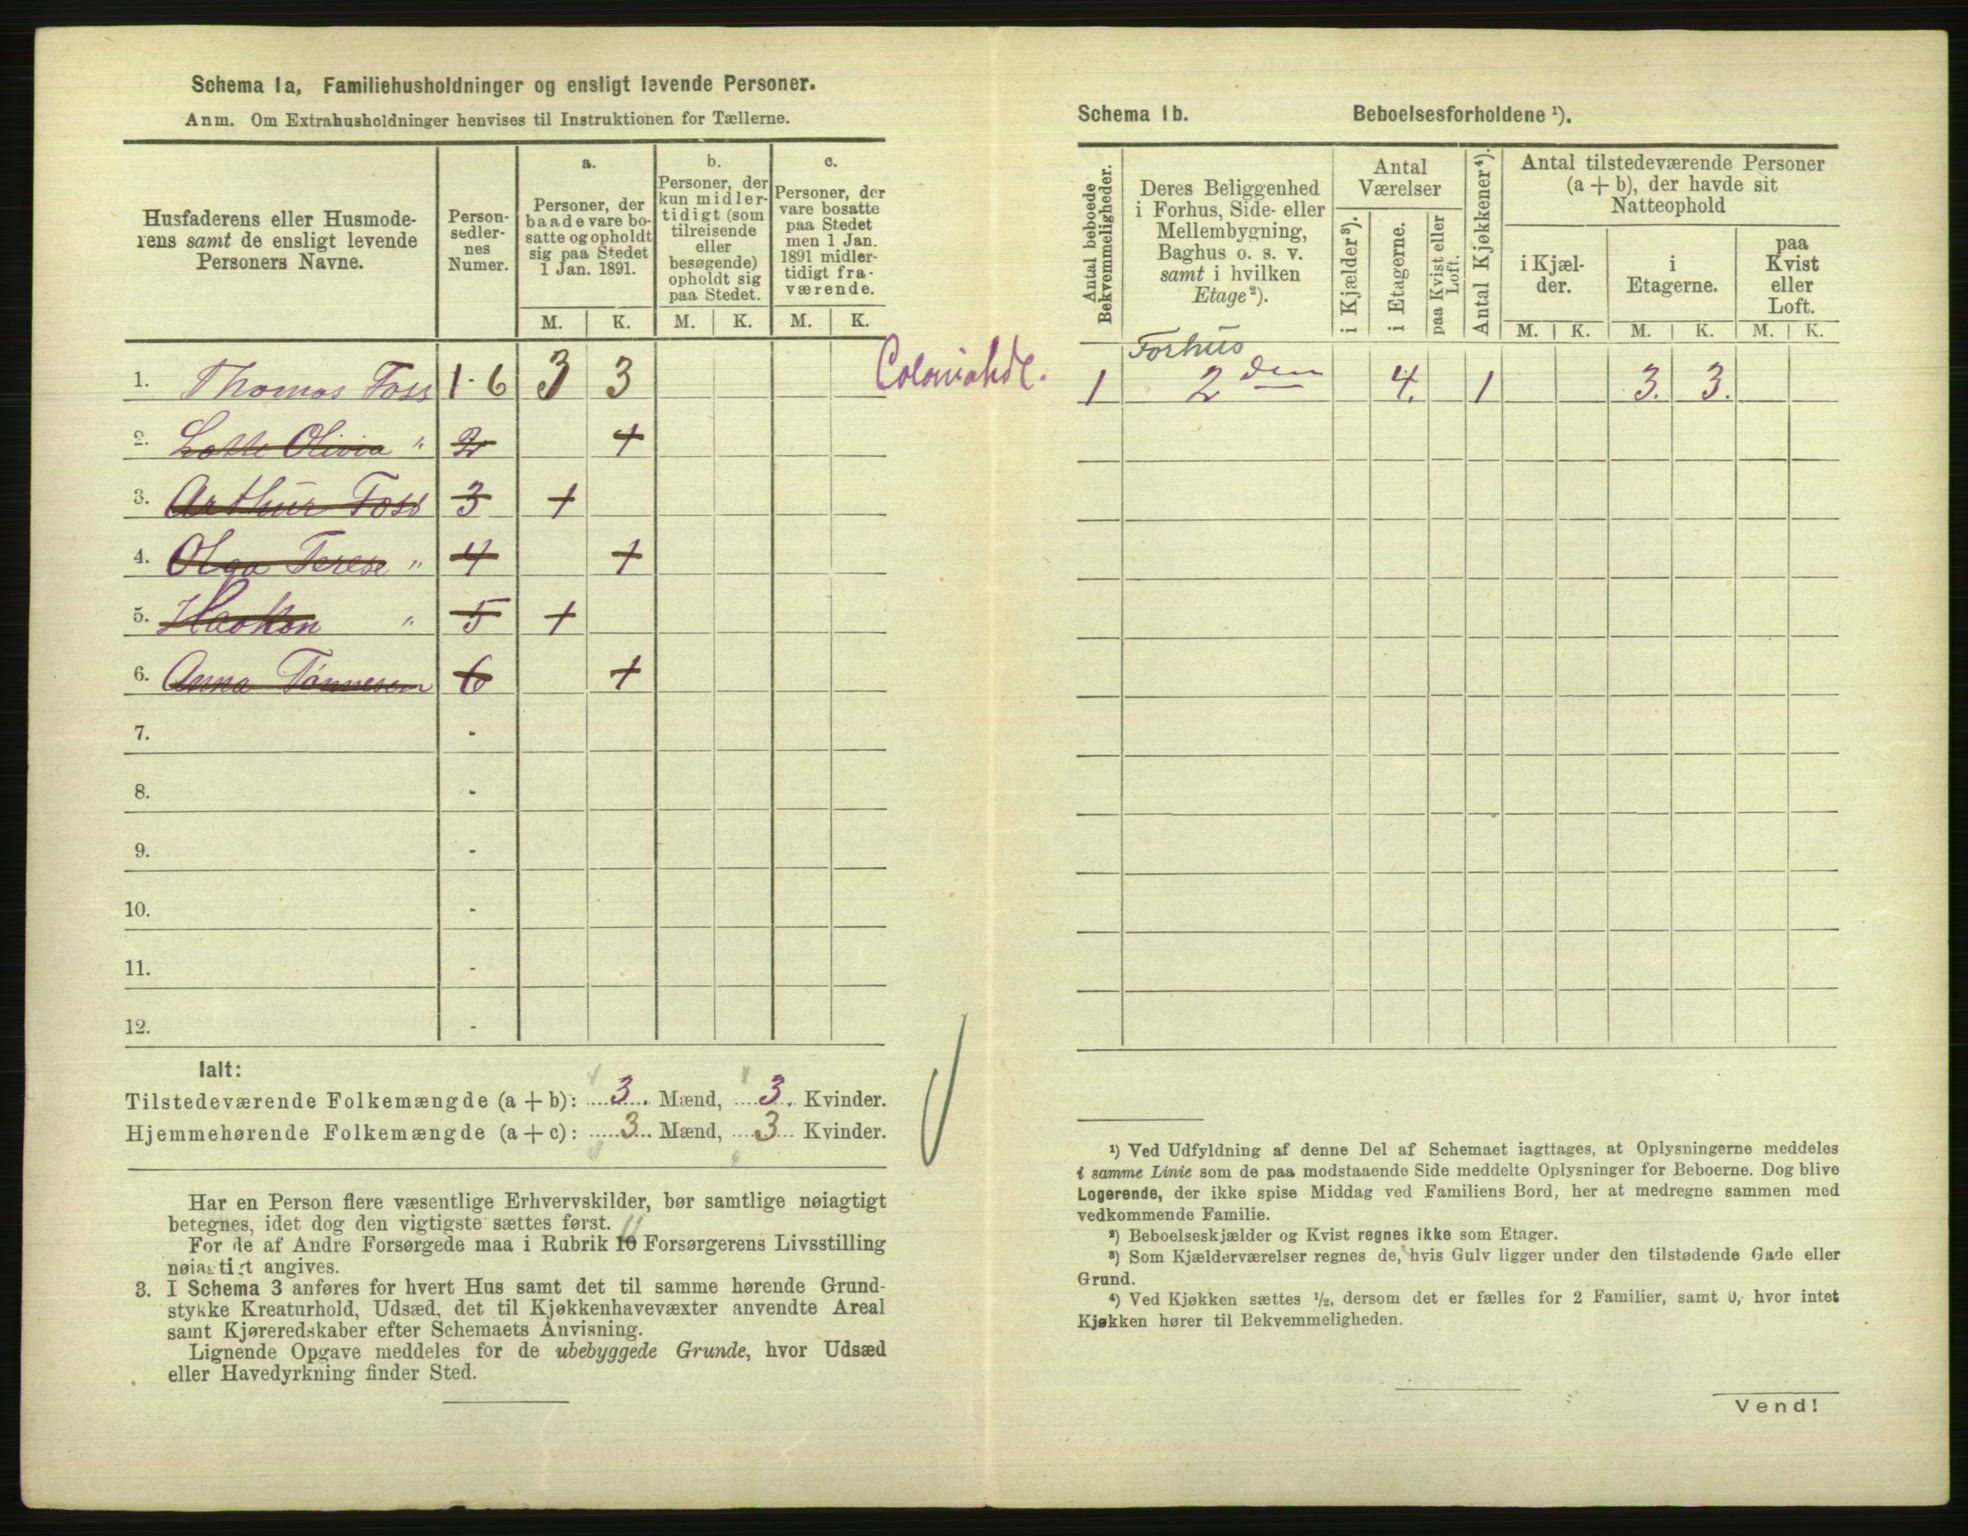 Schema 1a, Familiehusholdninger og ensligt levende Personer.
Anm. Om Extrahusholdninger henvises til Instruktionen for Tællerne.
Husfaderens eller Husmode-
rens samt de ensligt levende
Personers Navne.
Person-
sedler-
nes
Numer.
a.
Personer, der
baade vare bo-
satte og opholdt
sig paa Stedet
1 Jan. 1891.
b.
Personer, der
kun midler-
tidigt (som
tilreisende
eller
besøgende)
opholdt sig
paa Stedet.
c.
Personer, der
vare bosatte
paa Stedet
men 1 Jan.
1891 midler-
tidigt fra-
værende.
M. K. M. K. M. K.
1. Thomas Foss 1-6 3 3
2. Lotte Olivia " 2 +
3. Arthur Foss 3 +
4. Olga Terese " 4 +
5. Haakon " 5 +
6. Anna Tønnesen 6 +
7. -
8. -
9. -
10. -
11. -
12. -
Ialt:
Tilstedeværende Folkemængde (a + b): 3. Mænd, 3. Kvinder.
Hjemmehørende Folkemængde (a + c): 3 Mænd, 3 Kvinder.
Har en Person flere væsentlige Erhvervskilder, bør samtlige nøiagtigt
betegnes, idet dog den vigtigste sættes først.
11
For de af Andre Forsørgede maa i Rubrik 10 Forsørgerens Livsstilling
nøiagtigt angives.
3. I Schema 3 anføres for hvert Hus samt det til samme hørende Grund-
stykke Kreaturhold, Udsæd, det til Kjøkkenhavevæxter anvendte Areal
samt Kjøreredskaber efter Schemaets Anvisning.
Lignende Opgave meddeles for de ubebyggede Grunde, hvor Udsæd
eller Havedyrkning finder Sted.
Colonialhdl.
Schema 1b. Beboelsesforholdene ¹).
Antal beboede
Bekvemmeligheder.
Deres Beliggenhed
i Forhus, Side- eller
Mellembygning,
Baghus o. s. v.
samt i hvilken
Etage²).
Antal
Værelser
i Kjælder³).
i Etagerne.
paa Kvist eller
Loft.
Antal Kjøkkener⁴).
Antal tilstedeværende Personer
(a + b), der havde sit
Natteophold
i Kjæl-
der.
i
Etagerne.
paa
Kvist
eller
Loft.
M. K. M. K. M. K.
Forhus
1 2 den 4. 1 3. 3.
¹) Ved Udfyldning af denne Del af Schemaet iagttages, at Oplysningerne meddeles
i samme Linie som de paa modstaaende Side meddelte Oplysninger for Beboerne. Dog blive
Logerende, der ikke spise Middag ved Familiens Bord, her at medregne sammen med
vedkommende Familie.
²) Beboelseskjælder og Kvist regnes ikke som Etager.
³) Som Kjælderværelser regnes de, hvis Gulv ligger under den tilstødende Gade eller
Grund.
⁴) Ved Kjøkken sættes ½, dersom det er fælles for 2 Familier, samt 0, hvor intet
Kjøkken hører til Bekvemmeligheden.
Vend!